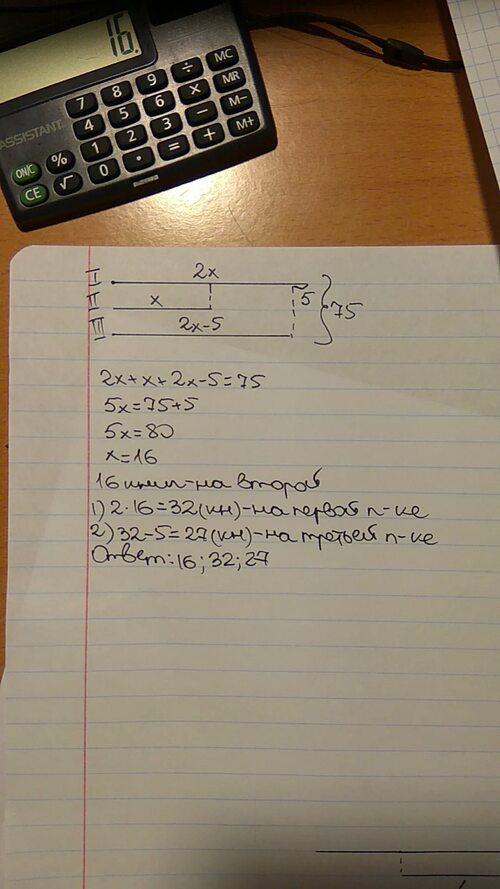 16.
MC
7 8 9 ÷ MR
4 5 6 × M-
1 2 3 − M+
0 • = +
ASSISTANT
ON/C % 
CE √
I 2x
II x 5 75
III 2x-5
2x+x+2x-5=75
5x=75+5
5x=80
x=16
16 книг-на второй
1) 2·16=32(кн)-на первой п-ке
2) 32-5=27(кн)-на третьей п-ке
Ответ: 16; 32; 27